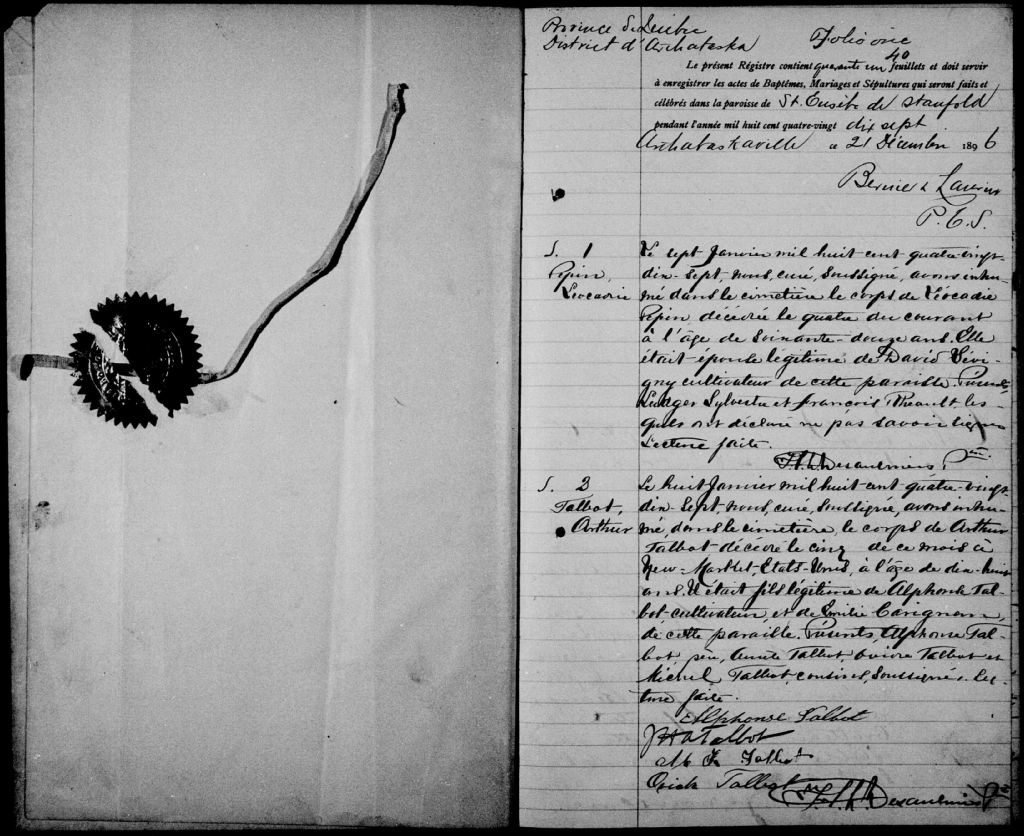 Province de Québec
District d'Arthabaska
Folio one
40
Le présent Régistre contient quarante un feuillets et doit servir
à enregistrer les actes de Baptêmes, Mariages et Sépultures qui seront faits et
célébrés dans la paroisse de St. Eusèbe de Stanfold
pendant l'année mil huit cent quatre-vingt dix sept
Arthabaskaville ce 21 Décembre 1896
Bernier & Laurier
P. C. S.
S. 1
Pepin,
Léocadie
Le sept Janvier mil huit cent quatre-vingt-
dix-sept, nous, curé, soussigné, avons inhu-
mé dans le cimetière le corps de Léocadie
Pepin, décédée le quatre du courant
à l'âge de soixante-douze ans. Elle
était épouse légitime de David Sévi-
gny cultivateur de cette paroisse. Présents,
Ludger Sylvestre et François Théault, les-
quels ont déclaré ne pas savoir signer
Lecture faite.
Desaulniers, Ptre.
S. 2
Talbot,
Arthur
Le huit Janvier mil huit cent quatre-vingt-
dix-sept, nous, curé, soussigné, avons inhu-
mé, dans le cimetière, le corps de Arthur
Talbot décédé le cinq de ce mois à
New-Market, Etats-Unis, à l'âge de dix-huit
ans. Il était fils légitime de Alphonse Tal-
bot, cultivateur, et de Emilie Carignan,
de cette paroisse. Présents, Alphonse Tal-
bot, père, Talbot, Talbot et
Michel Talbot, cousins, soussignés. Lec-
ture faite.
Alphonse Talbot
Talbot
Talbot
Talbot
Desaulniers Ptre